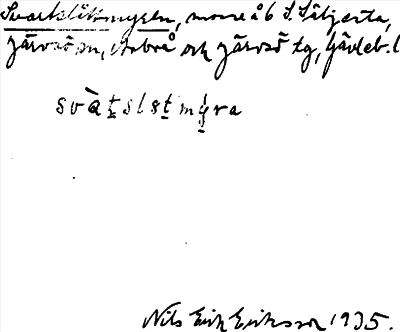 Svartslåtmyren, mosse å 6 S. Säljesta,
Järvsö sn, Arbrå och Järvsö tg, Gävleb. l
Nils Erik Eriksson 1935.